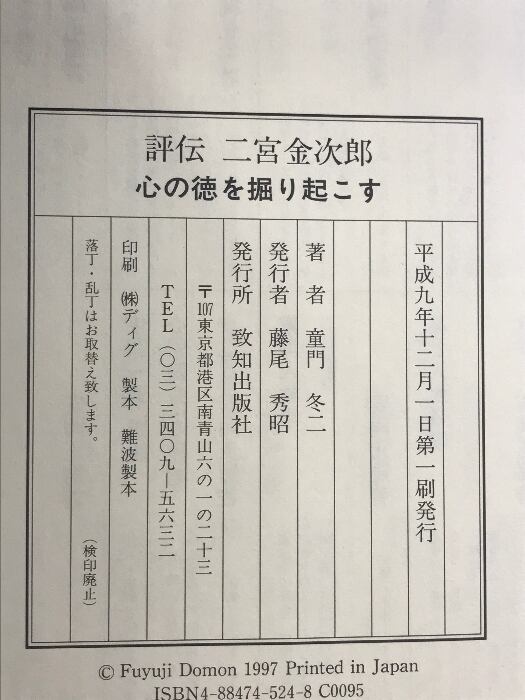 評伝 二宮金次郎
心の徳を掘り起こす
平成九年十二月一日第一刷発行
著 者 童門 冬二
発行者 藤尾 秀昭
発行所 致知出版社
〒107東京都港区南青山六の一の二十三
TEL(〇三)三四〇九―五六三二
印刷 ㈱ディグ 製本 難波製本
落丁・乱丁はお取替え致します。 (検印廃止)
© Fuyuji Domon 1997 Printed in Japan
ISBN4-88474-524-8 C0095